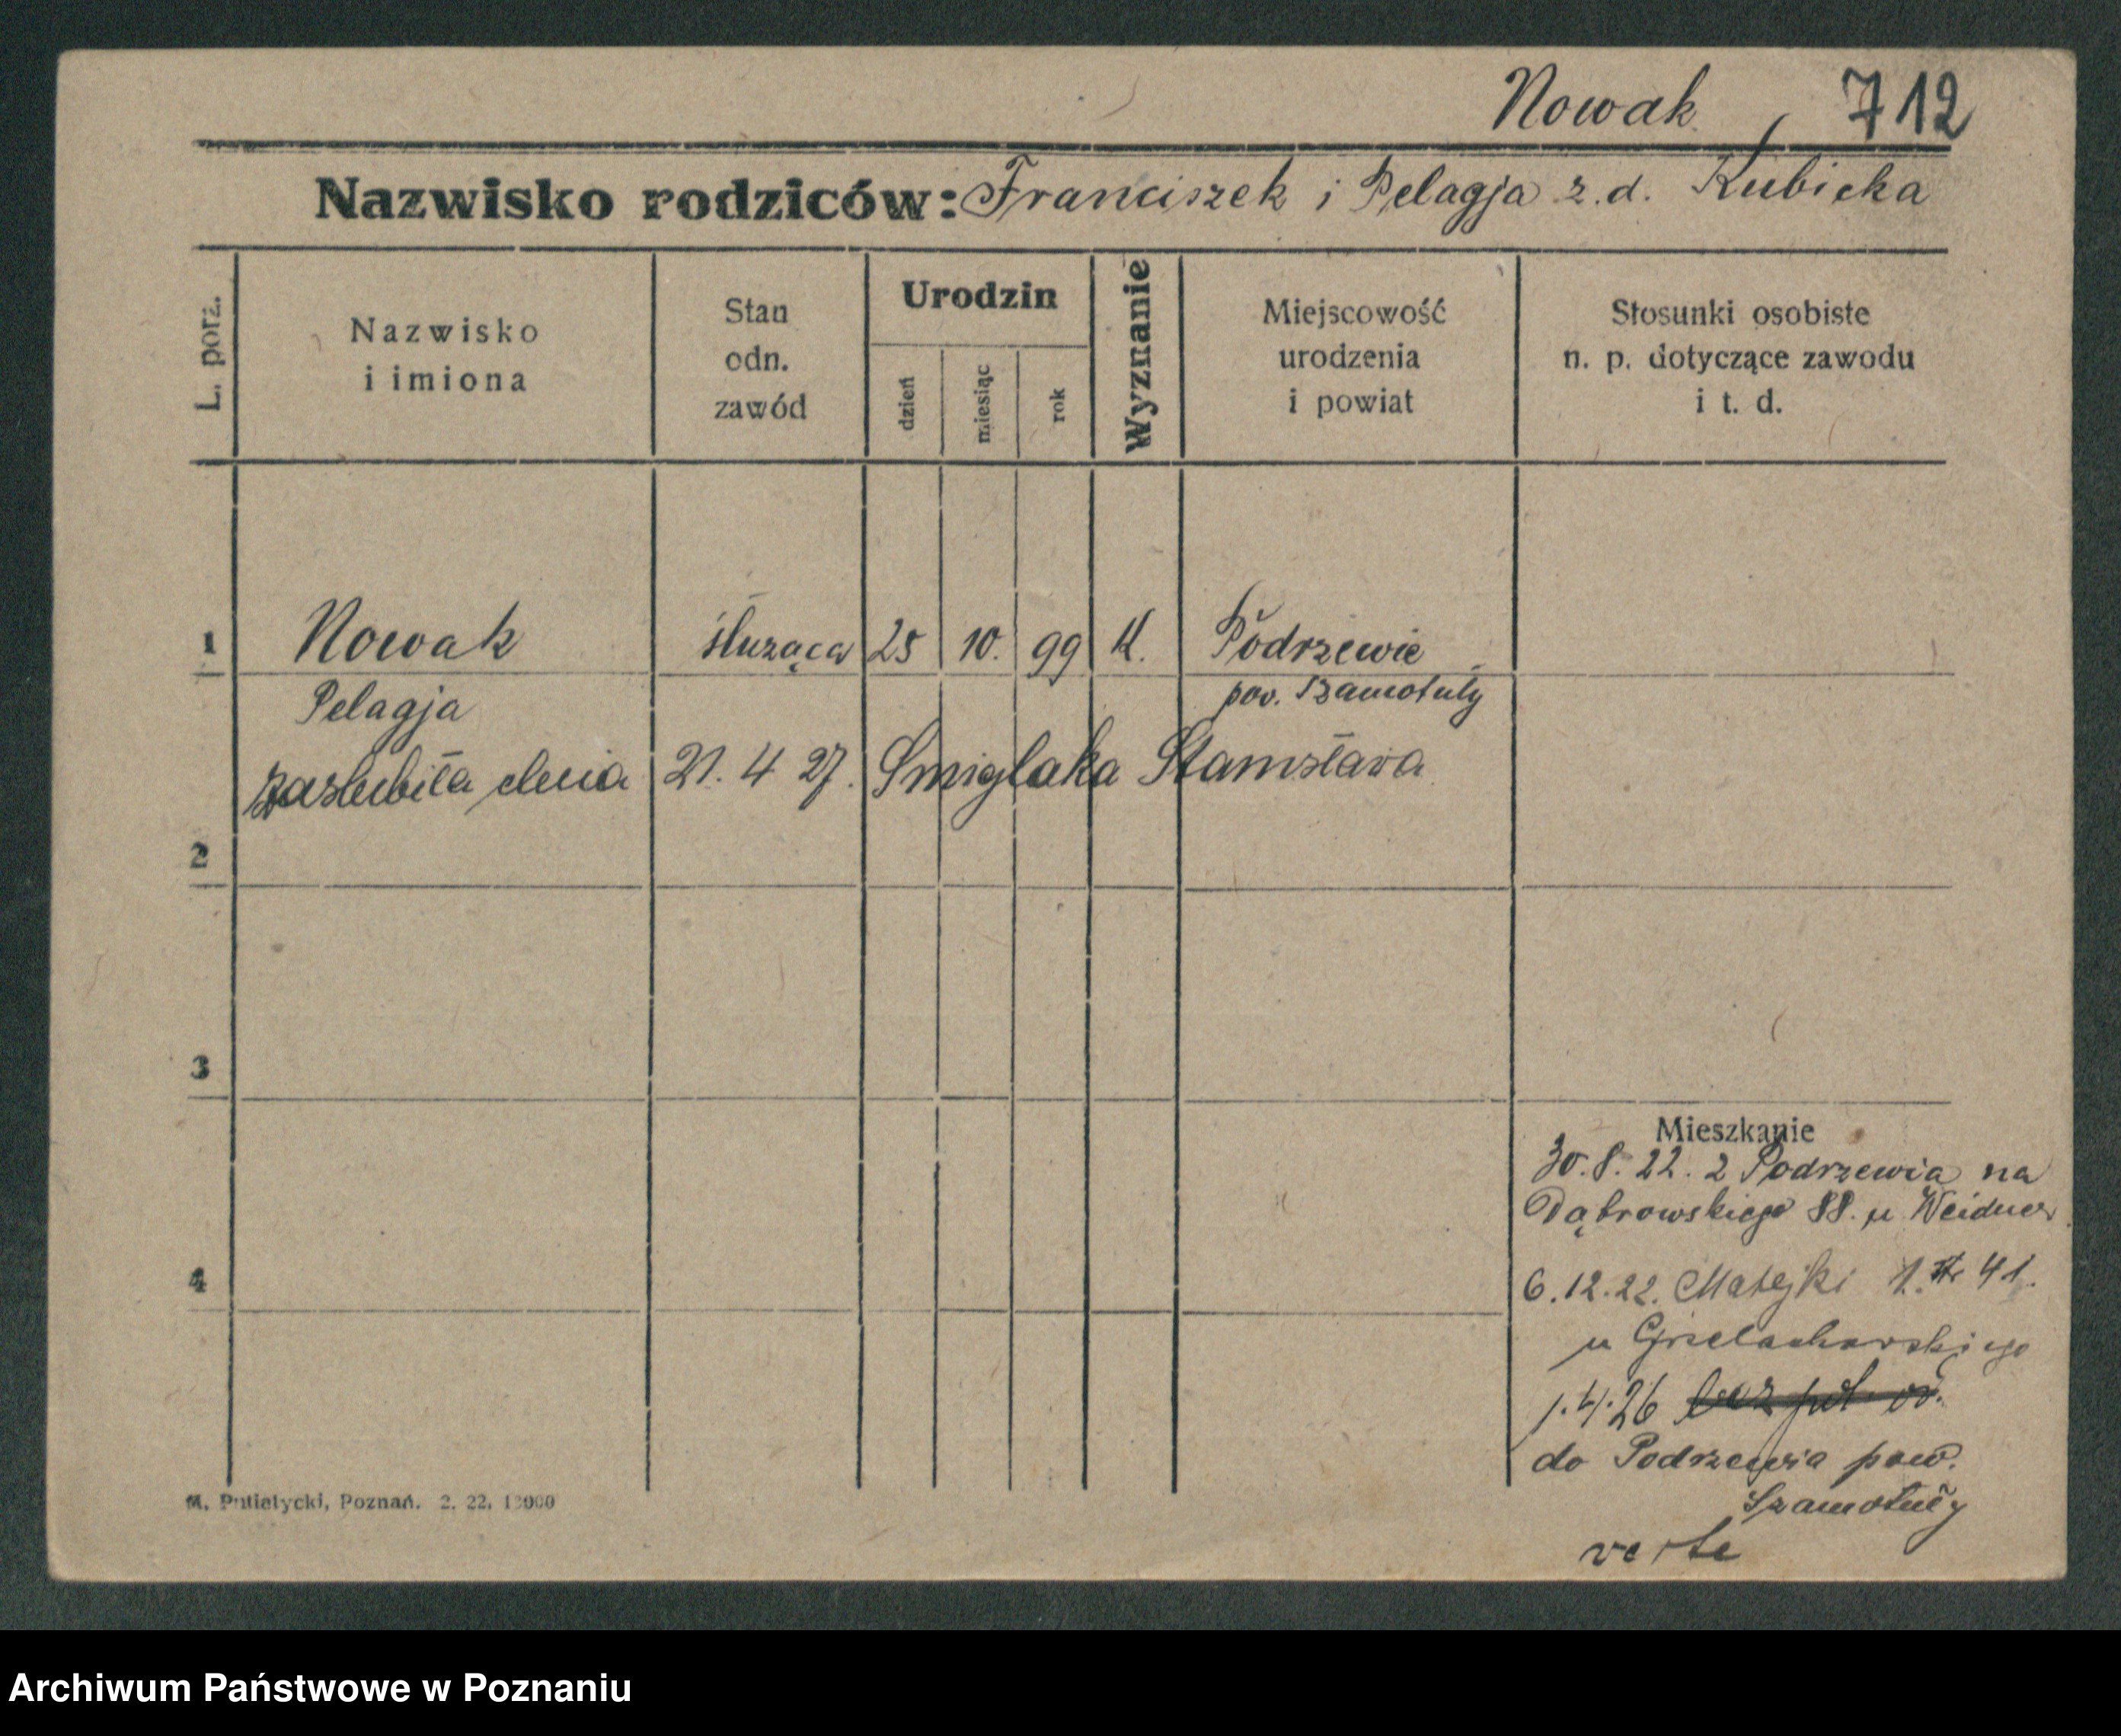 Nowak 712
Nazwisko rodziców: Franciszek i Pelagja z.d. Kubicka
L. porz.
Nazwisko
i imiona
Stan
odn.
zawód
Urodzin
dzień
miesiąc
rok
Wyznanie
Miejscowość
urodzenia
i powiat
Stosunki osobiste
n. p. dotyczące zawodu
i t. d.
1 Nowak służąca 25 10. 99 K. Podrzewie
Pelagja pow. Szamotuły
zaslubiła dnia 21. 4 27. Smiglaka Stanisława
2
3
Mieszkanie
30.8.22. z Podrzewia na
Dąbrowskiego 88. u Weidner
4
6.12.22. Matejki 41.
u
1.4.26 bez pol.
do Podrzewia pow.
Szamotuły
verte
M. Putiatycki, Poznań. 2. 22. 12000
Archiwum Państwowe w Poznaniu